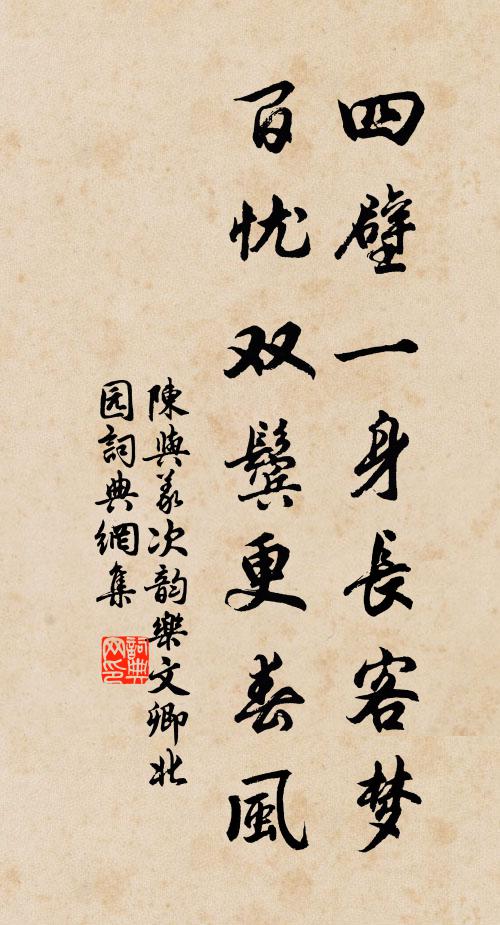 四壁一身長客梦
百忧双鬓更春風
陳與義次韵樂文卿北
园詞典網集
詞典网印